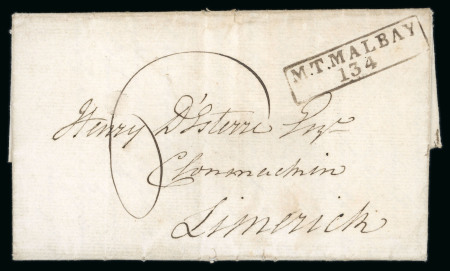 M.T.MALBAY
134
Henry D'Esterre Esqr
Clonmachin
Limerick